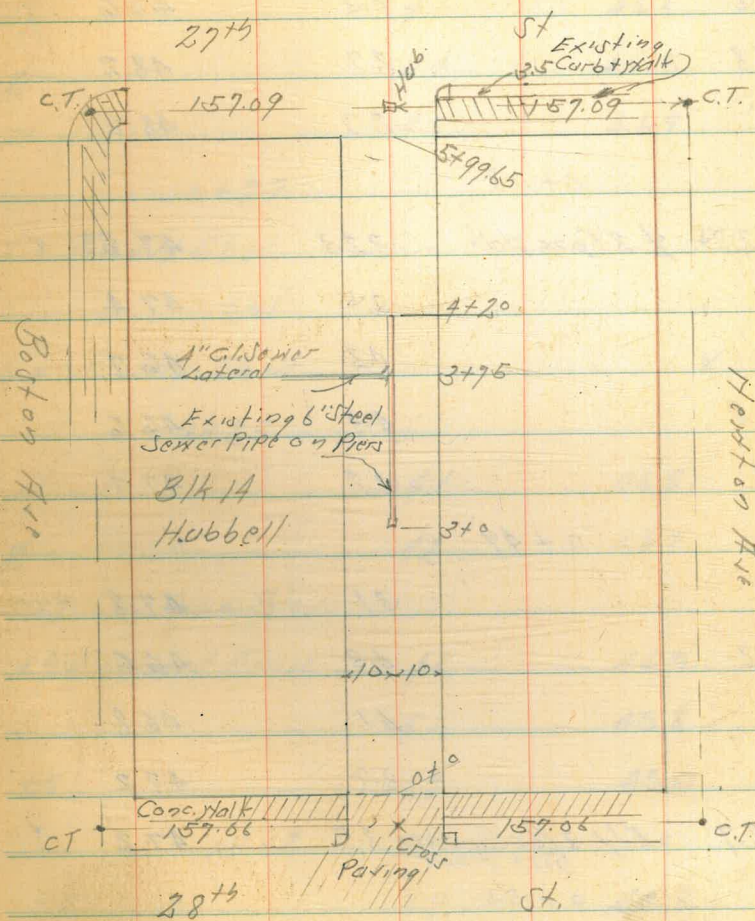 27th St
Hub
Existing
3.5 Curb + Walk
C.T. 157.09 157.09 C.T.
5+99.65
4+20
4" C.I. Sewer
Lateral
3+95
Existing 6" Steel
Sewer Pipe on Piers
Blk 14
Hubbell
3+0
Boston Ave
Newton Ave
10 10
0+0
Conc. Walk
CT 157.06 157.06 C.T.
Cross
Paving
28th St.